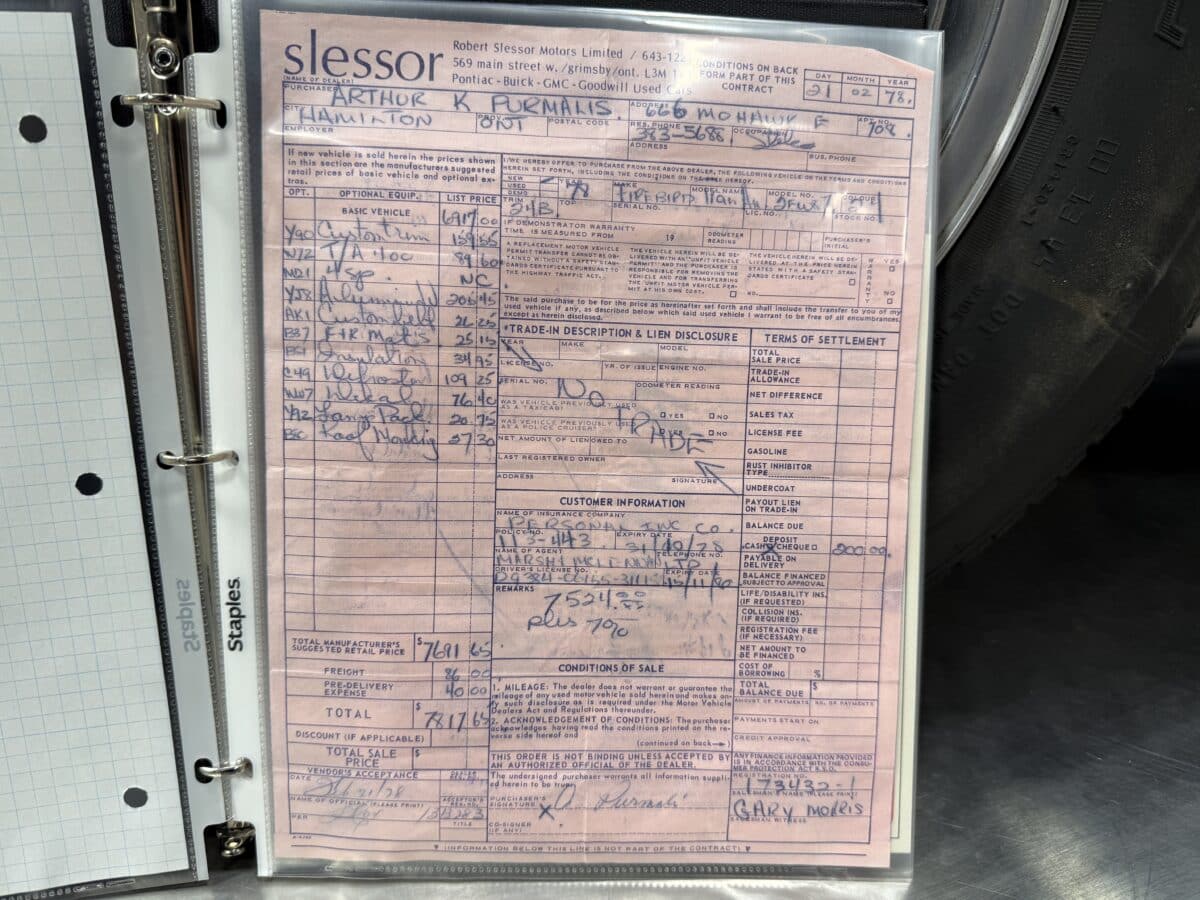 slessor
Robert Slessor Motors Limited / 643-12
569 main street w. /grimsby/ont. L3M
Pontiac - Buick - GMC - Goodwill Used Cars
CONDITIONS ON BACK
FORM PART OF THIS
CONTRACT
DAY MONTH YEAR
21 02 78.
(NAME OF DEALER)
PURCHASER ARTHUR K PURMALIS. ADDRESS 666 MOHAWK E APT. NO. 708.
CITY HAMILTON PROV. ONT POSTAL CODE RES. PHONE 383-5688
EMPLOYER ADDRESS BUS. PHONE
If new vehicle is sold herein the prices shown
in this section are the manufacturers suggested
retail prices of basic vehicle and optional ex-
tras.
I/WE HEREBY OFFER TO PURCHASE FROM THE ABOVE DEALER, THE FOLLOWING VEHICLE ON THE TERMS AND CONDITIONS
HEREIN SET FORTH, INCLUDING THE CONDITIONS ON THE HEREOF.
NEW
USED
DEMO
MAKE FIREBIRD MODEL NAME MODEL NO.
TRIM 24B TOP SERIAL NO. LIC. NO. STOCK NO.
IF DEMONSTRATOR WARRANTY
TIME IS MEASURED FROM 19 ODOMETER READING PURCHASER'S INITIAL
A REPLACEMENT MOTOR VEHICLE
PERMIT TRANSFER CANNOT BE OB-
TAINED WITHOUT A SAFETY STAN-
DARDS CERTIFICATE PURSUANT TO
THE HIGHWAY TRAFFIC ACT.
THE VEHICLE HEREIN WILL BE DE-
LIVERED WITH AN "UNFIT VEHICLE
PERMIT" AND THE PURCHASER IS
RESPONSIBLE FOR REMOVING THE
VEHICLE AND FOR TRANSFERRING
THE UNFIT MOTOR VEHICLE PER-
MIT AT HIS OWN COST.
THE VEHICLE HEREIN WILL BE DE-
LIVERED AT THE PRICE HEREIN
STATED WITH A SAFETY STAN-
DARDS CERTIFICATE
NO.
WARRANTY YES NO
The said purchase to be for the price as hereinafter set forth and shall include the transfer to you of my
used vehicle if any, as described below which said used vehicle I warrant to be free of all encumbrances,
except as herein disclosed.
OPT. OPTIONAL EQUIP. LIST PRICE
BASIC VEHICLE 6917.00
Y90 Custom trim 159.55
W72 T/A 400 89.60
4 sp. NC
YJ8 Aluminum 206.45
AK1 Custom belt
B37 F+R Mats 25.15
Insulation 34.95
C49 Defroster 109 25
Decal 76.40
Lamp Pack 20.75
Roof Moulding 37.30
TOTAL MANUFACTURER'S
SUGGESTED RETAIL PRICE $7691 65
FREIGHT 86 00
PRE-DELIVERY
EXPENSE 40 00
TOTAL $7817.65
DISCOUNT (IF APPLICABLE)
TOTAL SALE
PRICE $
VENDOR'S ACCEPTANCE
DATE
NAME OF OFFICIAL (PLEASE PRINT)
PER
TITLE
*TRADE-IN DESCRIPTION & LIEN DISCLOSURE
YEAR MAKE MODEL
LICENSE NO. YR. OF ISSUE ENGINE NO.
SERIAL NO. ODOMETER READING
No TRADE
WAS VEHICLE PREVIOUSLY USED
AS A TAXICAB? YES NO
WAS VEHICLE PREVIOUSLY USED
AS A POLICE CRUISER? YES NO
NET AMOUNT OF LIEN OWED TO
LAST REGISTERED OWNER
ADDRESS SIGNATURE
CUSTOMER INFORMATION
NAME OF INSURANCE COMPANY
PERSONAL INC CO.
POLICY NO. 113-443 EXPIRY DATE 31/10/78
NAME OF AGENT TELEPHONE NO.
MARSH MCLENNAN LTD
DRIVER'S LICENSE NO. EXPIRY DATE
REMARKS
7524.00
plus 7%
CONDITIONS OF SALE
1. MILEAGE: The dealer does not warrant or guarantee the
mileage of any used motor vehicle sold herein and makes on-
ly such disclosure as is required under the Motor Vehicle
Dealers Act and Regulations thereunder.
2. ACKNOWLEDGEMENT OF CONDITIONS: The purchaser
acknowledges having read the conditions printed on the re-
verse side hereof and
(continued on back
THIS ORDER IS NOT BINDING UNLESS ACCEPTED BY
AN AUTHORIZED OFFICIAL OF THE DEALER.
The undersigned purchaser warrants all information suppli-
ed herein to be true.
PURCHASER'S
SIGNATURE X A Purmalis
CO-SIGNER
(IF ANY)
TERMS OF SETTLEMENT
TOTAL
SALE PRICE
TRADE-IN
ALLOWANCE
NET DIFFERENCE
SALES TAX
LICENSE FEE
GASOLINE
RUST INHIBITOR
TYPE
UNDERCOAT
PAYOUT LIEN
ON TRADE-IN
BALANCE DUE
DEPOSIT
CASH CHEQUE 200 00
PAYABLE ON
DELIVERY
BALANCE FINANCED
SUBJECT TO APPROVAL
LIFE/DISABILITY INS.
(IF REQUESTED)
COLLISION INS.
(IF REQUIRED)
REGISTRATION FEE
(IF NECESSARY)
NET AMOUNT TO
BE FINANCED
COST OF
BORROWING %
TOTAL
BALANCE DUE $
AMOUNT OF PAYMENTS NO. OF PAYMENTS
PAYMENTS START ON
CREDIT APPROVAL
ANY FINANCE INFORMATION PROVIDED
IS IN ACCORDANCE WITH THE CONSU-
MER PROTECTION ACT R.S.O.
REGISTRATION NO.
173432-1
SALESMAN'S NAME (PLEASE PRINT)
GARY MORRIS
SALESMAN WITNESS
(INFORMATION BELOW THIS LINE IS NOT PART OF THE CONTRACT)
Staples